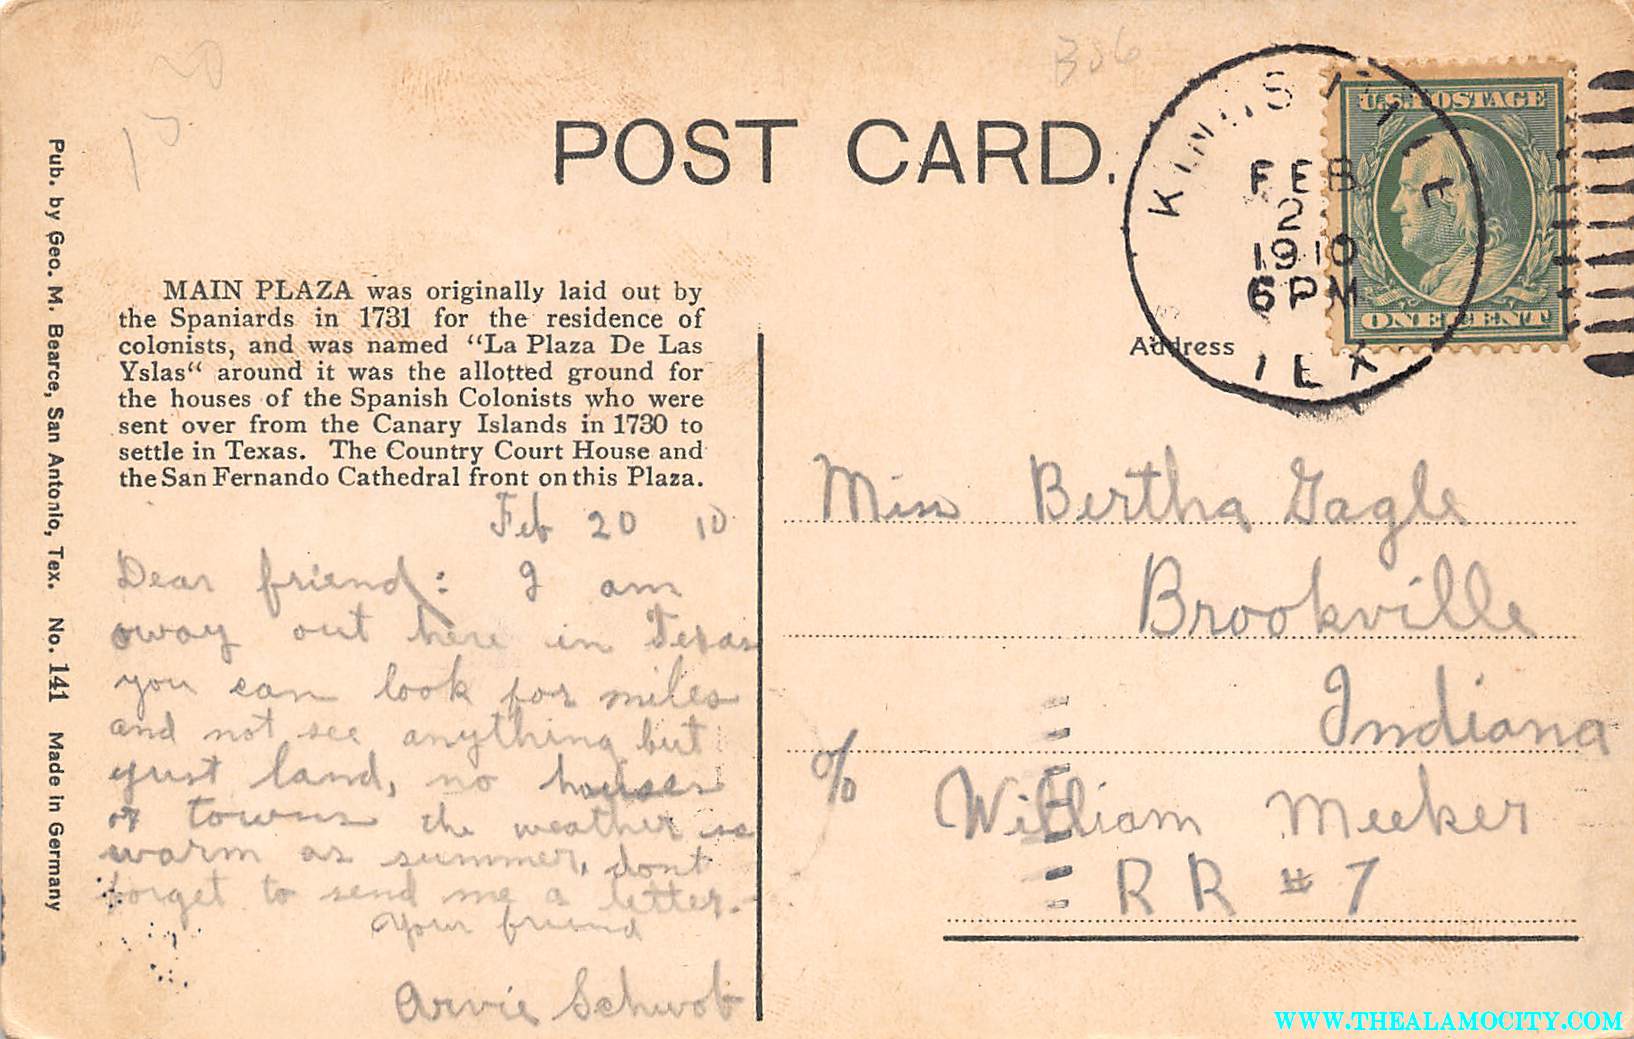 1500
306
POST CARD.
KINGSVILLE
FEB
2
1910
6 PM
TEX
U.S. POSTAGE
ONE CENT
Address
Pub. by Geo. M. Bearce, San Antonio, Tex. No. 141 Made in Germany
MAIN PLAZA was originally laid out by
the Spaniards in 1731 for the residence of
colonists, and was named “La Plaza De Las
Yslas“ around it was the allotted ground for
the houses of the Spanish Colonists who were
sent over from the Canary Islands in 1730 to
settle in Texas. The Country Court House and
the San Fernando Cathedral front on this Plaza.
Feb 20 10
Dear friend: I am
away out here in Texas
you can look for miles
and not see anything but
yust land, no houses
or towns the weather is
warm as summer, dont
forget to send me a letter.
Your friend
Arvie Schwob
Miss Bertha Gagle
Brookville
Indiana
% William Meeker
RR #7
WWW.THEALAMOCITY.COM